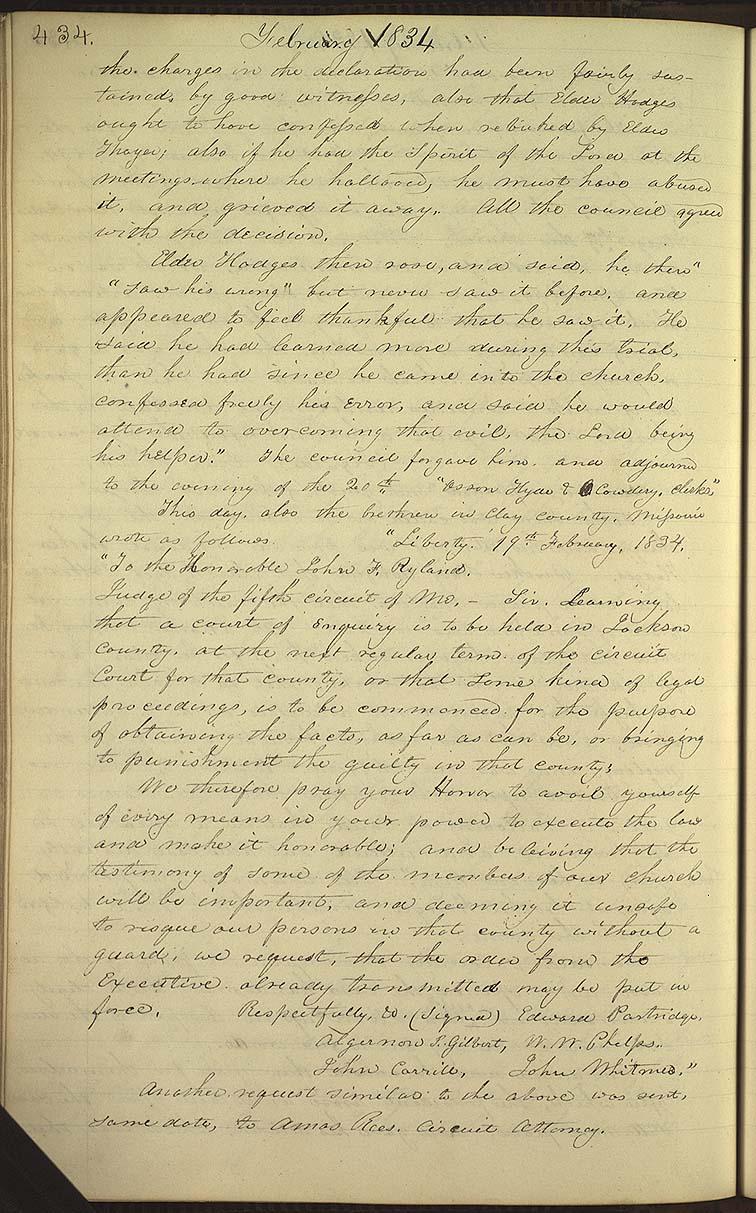 434. February 1834
the charges in the declaration had been fairly sus-
tained, by good witnesses, also that Elder Hodges
ought to have confessed when rebuked by Elder
Thayer; also if he had the Spirit of the Lord at the
meetings where he hallooed, he must have abused
it, and grieved it away. All the council agreed
with the decision.
Elder Hodges then rose, and said, he then "
"saw his wrong" but never saw it before, and
appeared to feel thankful that he saw it. He
said he had learned more during this trial,
than he had since he came into the church,
confessed freely his error, and said he would
attend to overcoming that evil, the Lord being
his helper." The council forgave him and adjourned
to the evening of the 20th. "Orson Hyde & O Cowdery, clerks"
This day, also the brethren in Clay county, Missouri
wrote as follows. "Liberty. 19th February, 1834.
"To the Honorable John F. Ryland.
Judge of the fifth circuit of Mo. – Sir. Learning
that a court of Enquiry is to be held in Jackson
County, at the next regular term of the circuit
Court for that county, or that some kind of legal
proceedings, is to be commenced for the purpose
of obtaining the facts, as far as can be, or bringing
to punishment the guilty in that county;
We therefore pray your Honor to avail yourself
of every means in your power to execute the law
and make it honorable; and beleiving that the
testimony of some of the members of our church
will be important, and deeming it unsafe
to risque our persons in that county without a
guard; we request, that the order from the
Executive already transmitted may be put in
force. Respectfully, &c. (Signed) Edward Partridge,
Algernon S. Gilbert, W. W. Phelps.
John Corrill, John Whitmer."
Another request similar to the above was sent,
same date, to Amos Rees. Circuit Attorney.